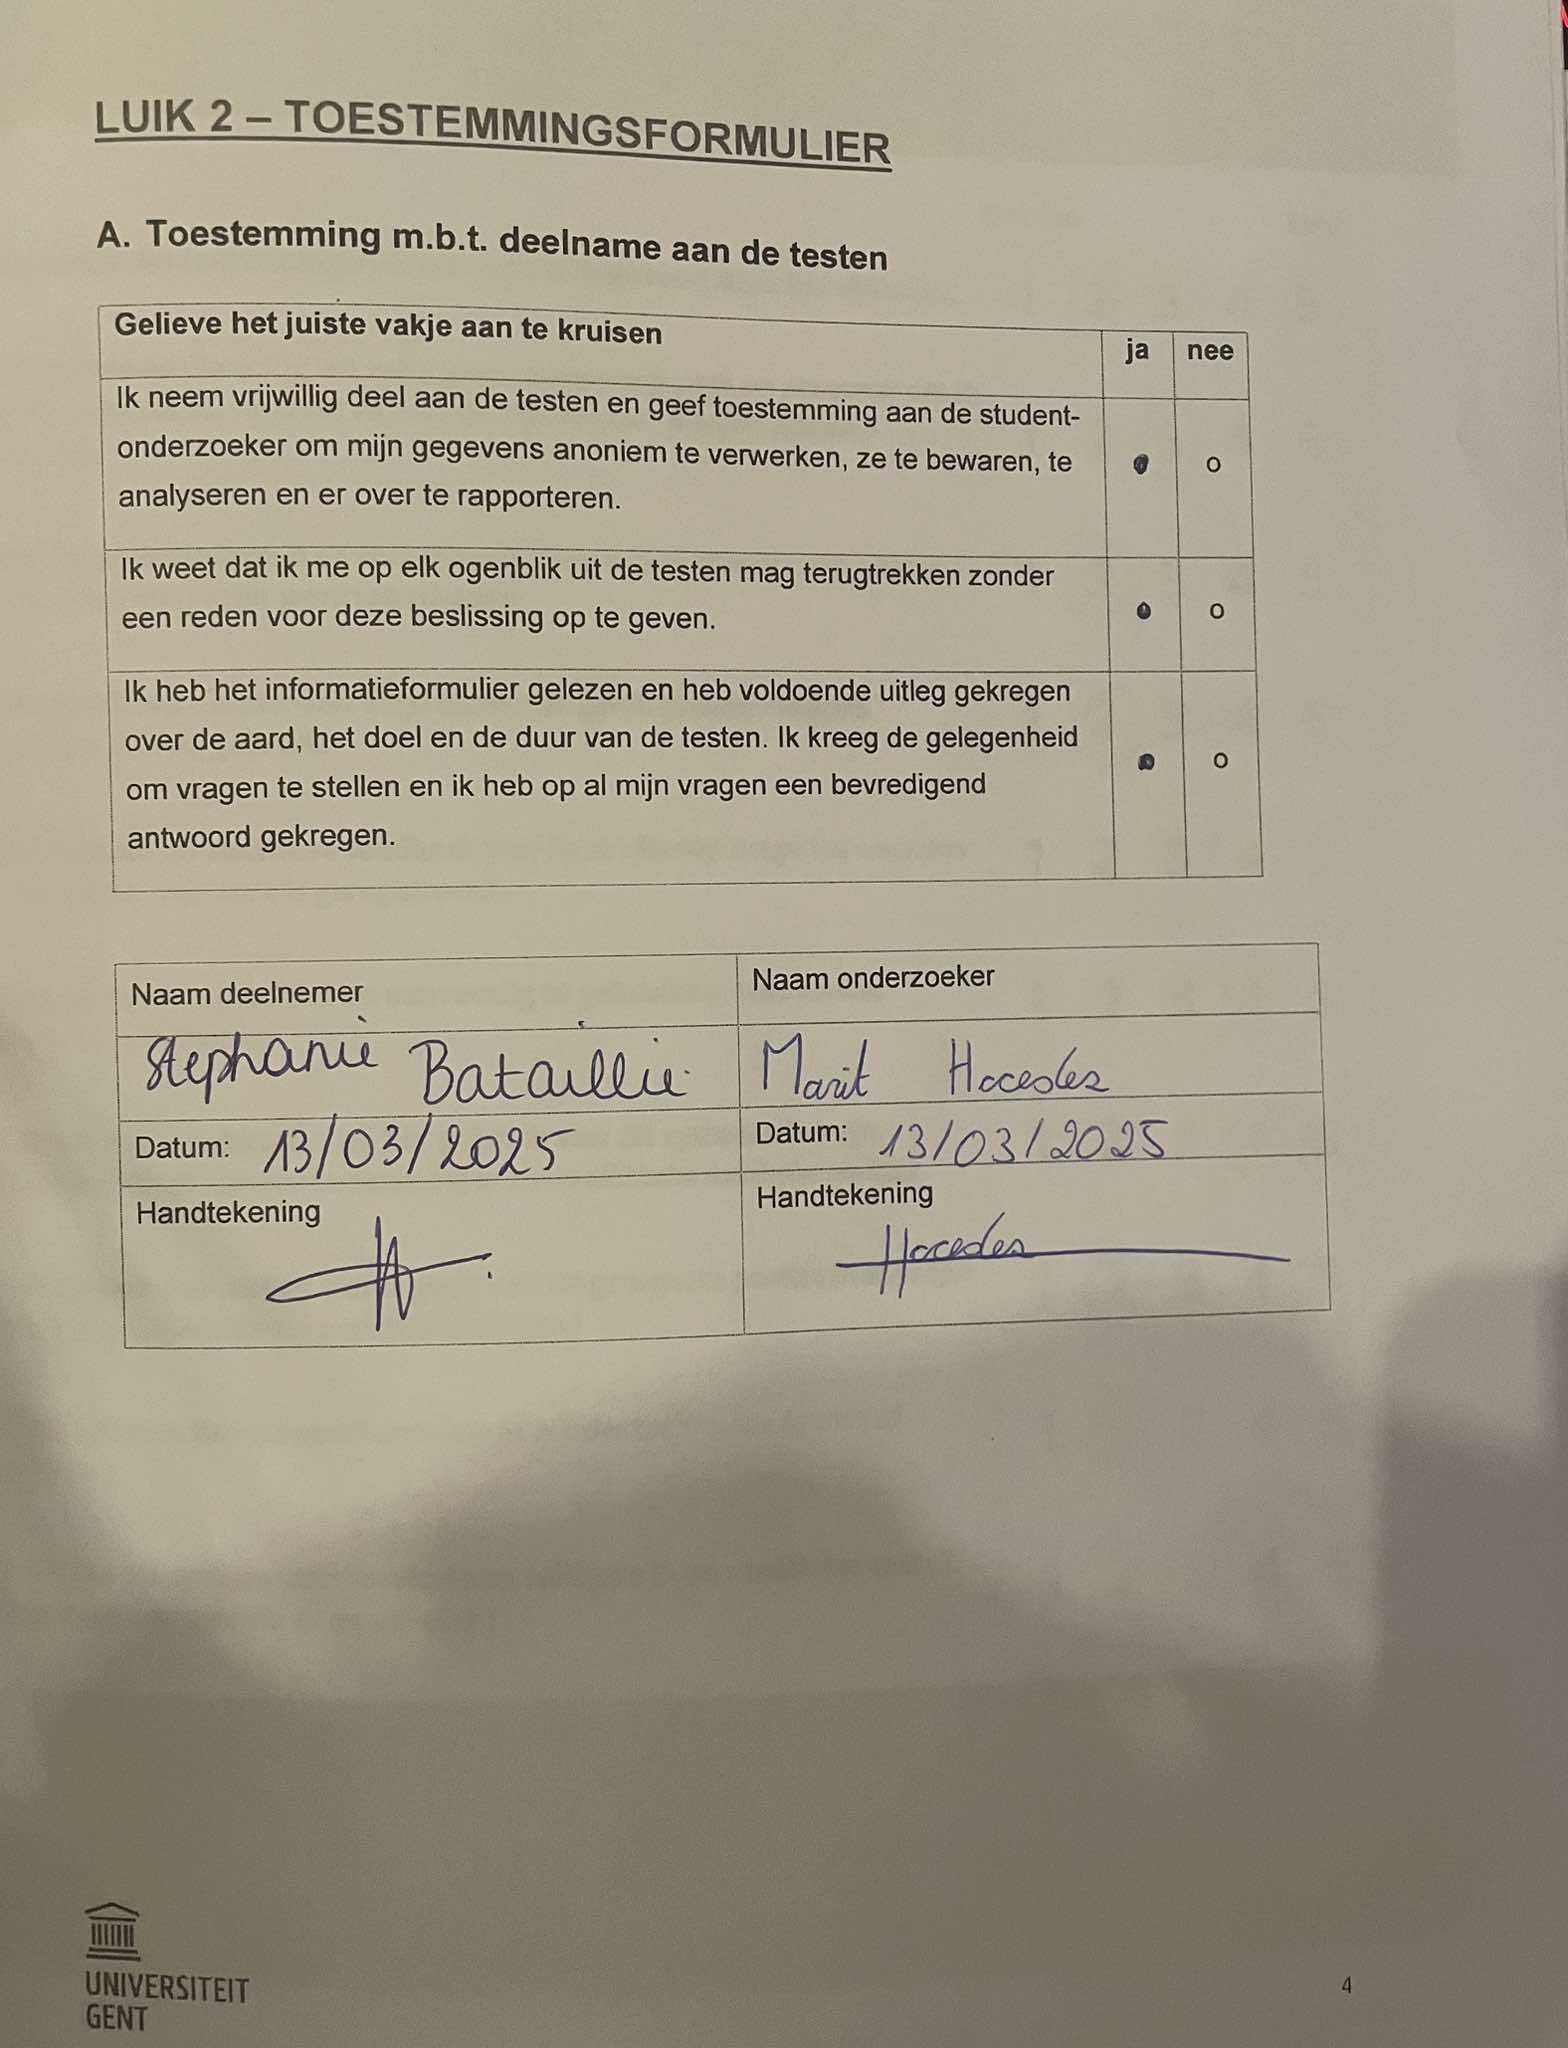 LUIK 2 – TOESTEMMINGSFORMULIER
A. Toestemming m.b.t. deelname aan de testen
Gelieve het juiste vakje aan te kruisen ja nee
Ik neem vrijwillig deel aan de testen en geef toestemming aan de student-
onderzoeker om mijn gegevens anoniem te verwerken, ze te bewaren, te
analyseren en er over te rapporteren.
o
Ik weet dat ik me op elk ogenblik uit de testen mag terugtrekken zonder
een reden voor deze beslissing op te geven.
o
Ik heb het informatieformulier gelezen en heb voldoende uitleg gekregen
over de aard, het doel en de duur van de testen. Ik kreeg de gelegenheid
om vragen te stellen en ik heb op al mijn vragen een bevredigend
antwoord gekregen.
o
Naam deelnemer Naam onderzoeker
Stephanie Bataillie Marit
Datum: 13/03/2025 Datum: 13/03/2025
Handtekening Handtekening
UNIVERSITEIT
GENT
4